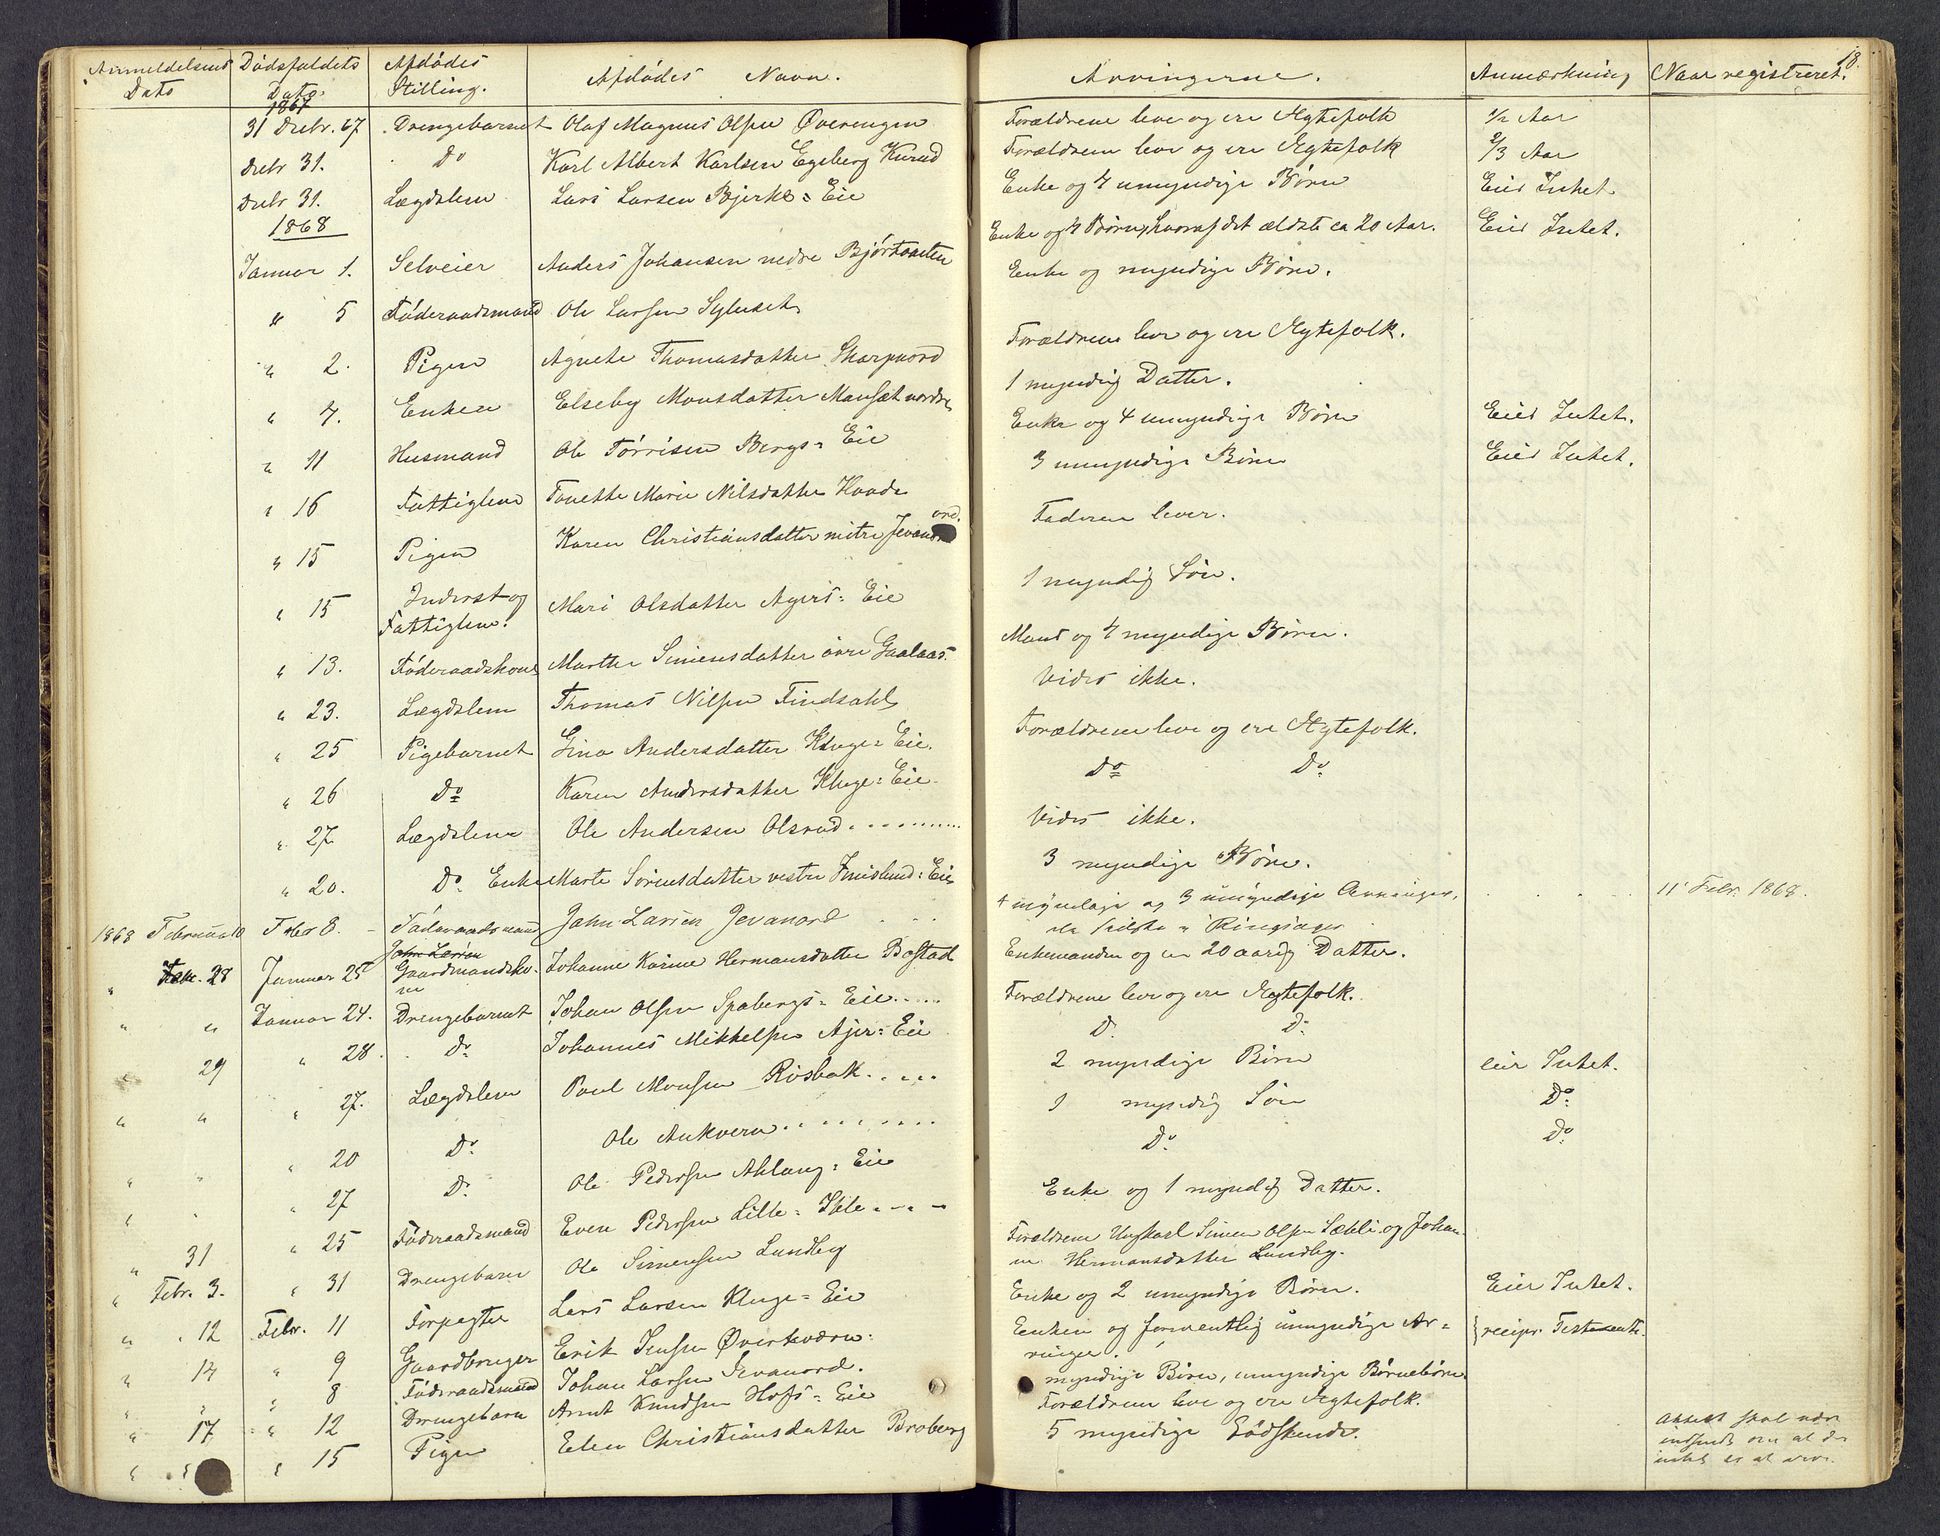 18.
Anmeldelsens Dato
Dødsfaldets Dato
Afdødes Stilling.
Afdødes Navn.
Arvingerne.
Anmærkning
Naar registreret.
1867
31 Decbr. 67 Drengebarnet Olaf Magnus Olsen Øverengen Forældrene leve og ere Ægtefolk ½ Aar
Decbr 31. Do Karl Albert Karlsen Egeberg Kurud Forældrene leve og ere Ægtefolk 2/3 Aar
Decbr 31. Lægdslem Lars Larsen Bjerke=Eie Enke og 4 umyndige Børn Eied Intet.
1868
Januar 1. Selveier Anders Johansen nedre Enke og 4 Børn, hvoraf det ældste ca 20 Aar. Eied Intet.
" 5 Føderaadsmand Ole Larsen Enke og myndige Børn.
" 2. Pigen Agnete Thomasdatter Skarpnord Forældrene leve og ere Ægtefolk.
" 7. Enken Elseby Monsdatter nordre 1 myndig Datter.
" 11 Husmand Ole Tørrisen Bergs=Eie Enke og 4 umyndige Børn Eied Intet.
" 16 Fattiglem Tonette Marie Nilsdatter 3 umyndige Børn Eied Intet.
" 15 Pigen Karen Christiansdatter mitre Jevanord. Faderen lever.
" 15 Inderst og Fattiglem. Mari Olsdatter Agers=Eie 1 myndig Søn.
" 13. Føderaadskone Marthe Simensdatter øvre Gaalaas. Mand og 4 myndige Børn.
" 23. Lægdslem Thomas Nilsen Findsahl Vides ikke.
" 25 Pigebarnet Lina Andersdatter Kluge=Eie. Forældrene leve og ere Ægtefolk.
" 26 Do Karen Andersdatter Kluge=Eie Do Do
" 27. Lægdslem Ole Andersen Olsrud Vides ikke.
" 20. Do. Enke Marte Sørensdatter vestre =Eie 3 myndige Børn.
1868 Februar 10 Febr 8. Føderaadsmand John Larsen Jevanord 4 myndige og 3 umyndige Arvinger, Ringsager 11 Febr. 1868.
John Larsen
" 28 Januar 25 Gaardmandskone Johanne Karine Hermansdatter Bostad Enkemanden og en 20 aarig Datter.
" " Januar 24. Drengebarnet Johan Olsen Spabergs=Eie Forældrene leve og ere Ægtefolk.
" 29 " 28. Do Johannes Mikkelsen Ajer=Eie D. D.
" " " 27. Lægdslem Poul Monsen Rosbak 2 myndige Børn eier Intet.
" " " 20 Do Ole Ankvern 1 myndig Søn Do
" " " 27 D. Ole Pedersen Ahlang=Eie Do Do
" 31 " 25 Føderaadsmand Even Pedersen Lille=Ihle Enke og 1 myndig Datter.
" Febr. 3. " 31 Drengebarn Ole Simensen Lundby Forældrene Ungkarl Simen Olsen Sæhli og Johanne Hermansdatter Lundby.
" " 12 Febr. 11 Forpagter Lars Larsen Kluge=Eie Enke og 2 umyndige Børn. Eier Intet.
" 14 " 9 Gaardbruger Erik Jensen Øverkværn. Enken og formentlig umyndige Arvinger. recipr. Testamente.
" " " 8 Føderaadsmand Johan Larsen Jevanord. myndige Børn, umyndige Børnebørn
" 17 " 12 Drengebarn Arnt Knudsen Hofs=Eie Forældrene leve og ere Ægtefolk.
" " " 15 Pigen Elen Christiansdatter Broberg 5 myndige Sødskende. Attest skal indsendes om at intet er at arve.